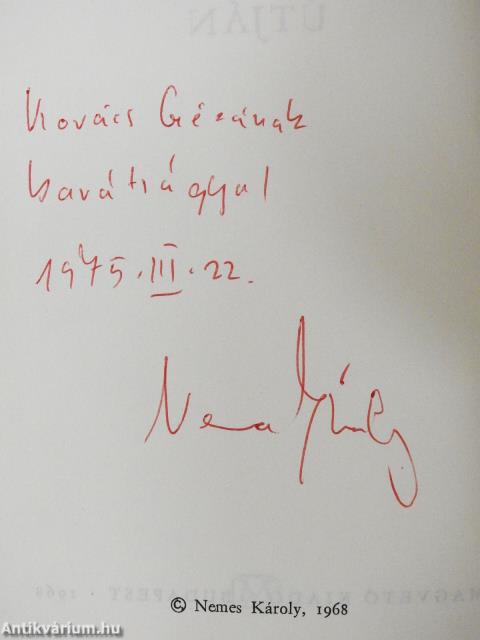 UTJÁN
Kovács Gézának
barátsággal
1975. III. 22.
Nemes Károly
MAGVETŐ KIADÓ BUDAPEST · 1968
© Nemes Károly, 1968
Antikvárium.hu